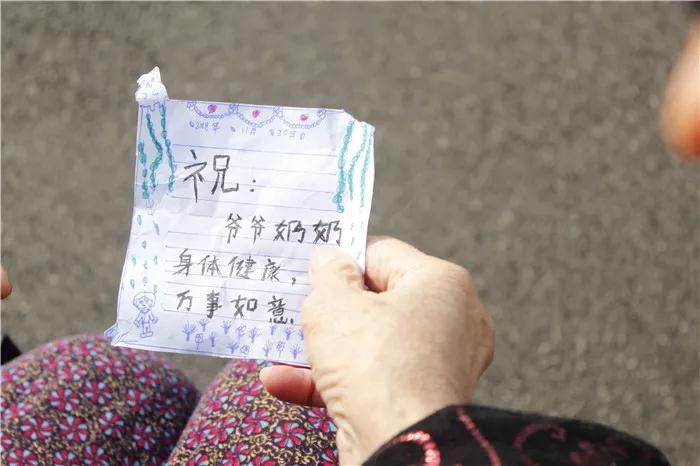 2018年 11月 20日
祝：
爷爷奶奶
身体健康，
万事如意.